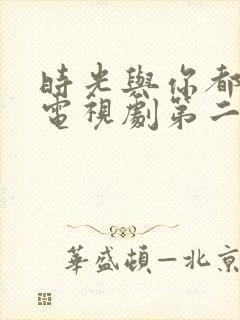 時光與你都
電視劇第二
華盛頓—北京